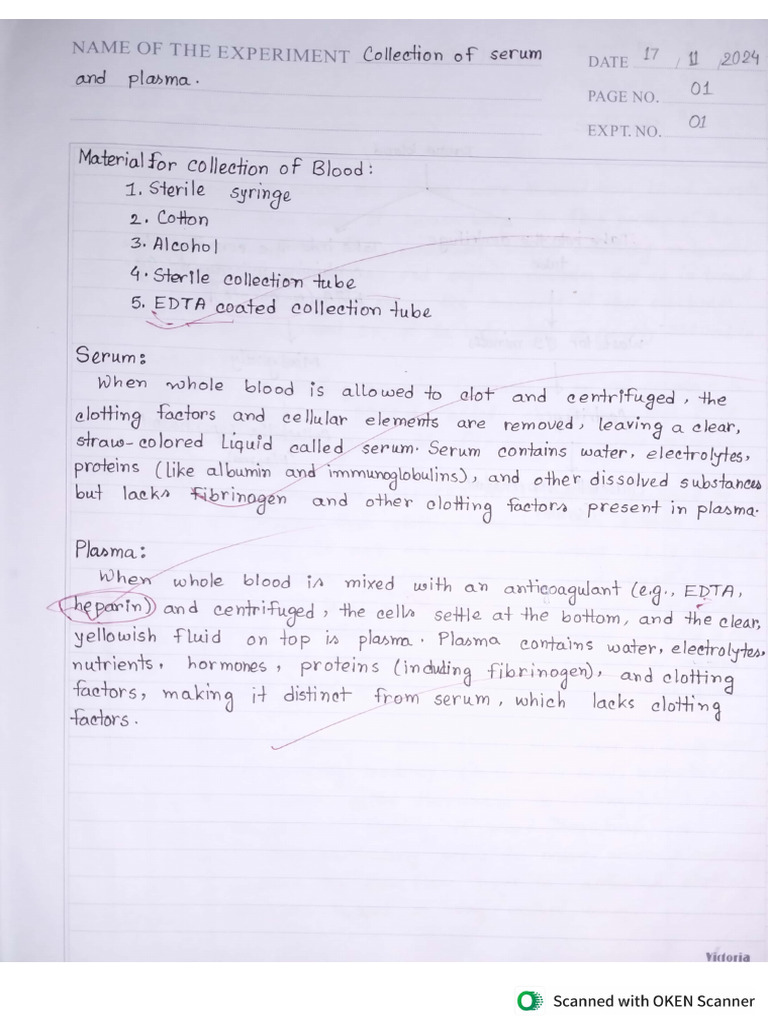 NAME OF THE EXPERIMENT Collection of serum
and plasma.
DATE 17 / 11 / 2024
PAGE NO. 01
EXPT. NO. 01
Material for collection of Blood:
1. Sterile syringe
2. Cotton
3. Alcohol
4. Sterile collection tube
5. EDTA coated collection tube
Serum:
When whole blood is allowed to clot and centrifuged, the
clotting factors and cellular elements are removed, leaving a clear,
straw-colored liquid called serum. Serum contains water, electrolytes,
proteins (like albumin and immunoglobulins), and other dissolved substances
but lacks fibrinogen and other clotting factors present in plasma.
Plasma:
When whole blood is mixed with an anticoagulant (e.g., EDTA,
heparin) and centrifuged, the cells settle at the bottom, and the clear,
yellowish fluid on top is plasma. Plasma contains water, electrolytes,
nutrients, hormones, proteins (including fibrinogen), and clotting
factors, making it distinct from serum, which lacks clotting
factors.
Victoria
Scanned with OKEN Scanner